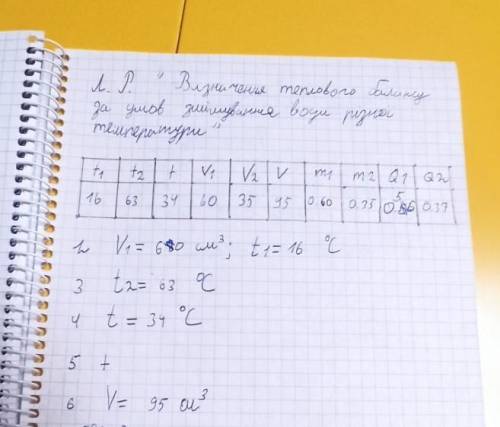 Л. Р. " Визначення теплового балансу
за умов змішування води різної
температури"
t1 t2 t V1 V2 V m1 m2 Q1 Q2
16 63 34 60 35 95 0.60 0.35 0.56 0.37
2 V1 = 60 см³; t1 = 16 °C
3 t2 = 63 °C
4 t = 34 °C
5 t
6 V = 95 см³